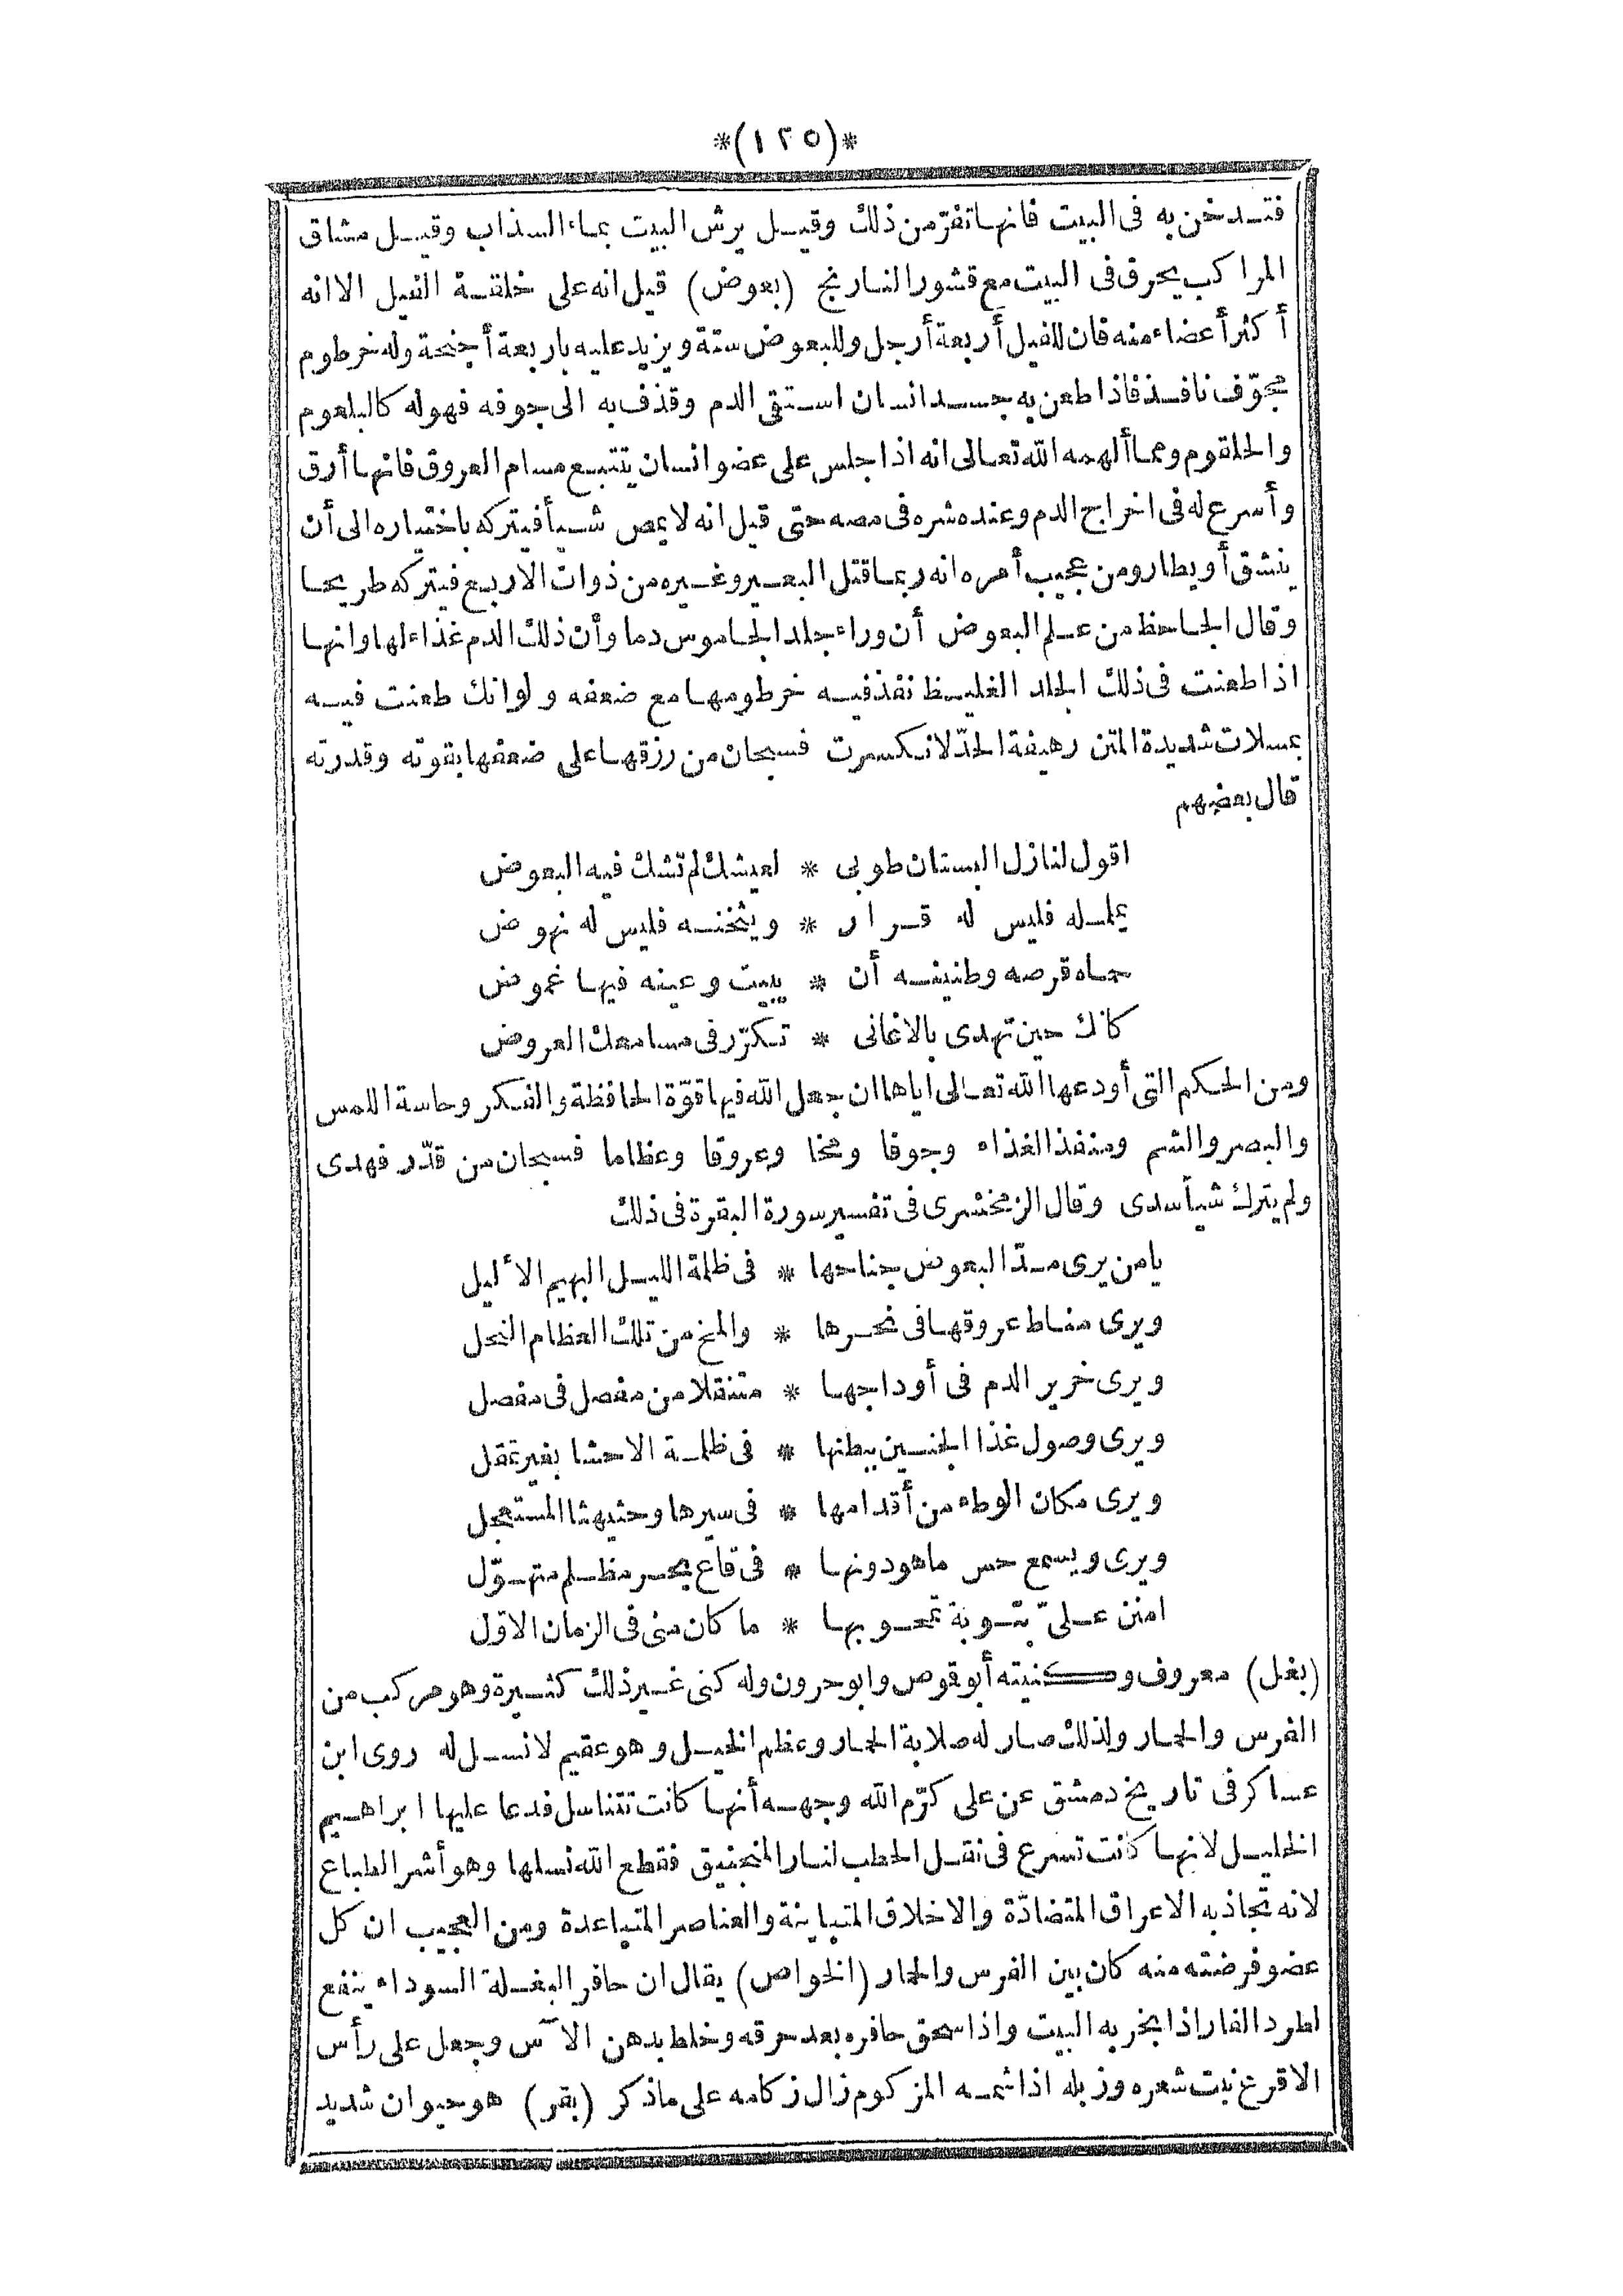 *(١٢٥)*
فتدخن به فى البيت فانها تفرّ من ذلك وقيل يرش البيت بماء السذاب وقيل مشاق
المراكب يحرق فى البيت مع قشور النارنج (بعوض) قيل انه على خلقة الفيل الا انه
أكثر أعضاء منه فان للفيل أربعة أرجل وللبعوض ستة ويزيد عليه باربعة أجنحة وله خرطوم
مجوّف نافذ فاذا طعن به جسد انسان استقى الدم وقذف به الى جوفه فهو له كالبلعوم
والحلقوم ومما ألهمه الله تعالى انه اذا جلس على عضو انسان يتتبع مسام العروق فانها أرق
وأسرع له فى اخراج الدم وعنده شره فى مصه حتى قيل انه لا يمص شيأ فيتركه باختياره الى أن
ينشق أو يطار ومن عجيب أمره انه ربما قتل البعير وغيره من ذوات الاربع فيتركه طريحا
وقال الجاحظ من علم البعوض أن وراء جلد الجاموس دما وأن ذلك الدم غذاء لها وانها
اذا طعنت فى ذلك الجلد الغليظ نفذ فيه خرطومها مع ضعفه ولو انك طعنت فيه
بمسلات شديدة المتن رهيفة الحدّ لانكسرت فسبحان من رزقها على ضعفها بقوته وقدرته
قال بعضهم
اقول لنازل البستان طوبى * لعيشك لم تشك فيه البعوض
يململه فليس له قرار * ويثخنه فليس له نهوض
حماه قرصه وطنينه أن * يبيت وعينه فيها غموض
كانك حين تهدى بالاغانى * تكرّر فى مسامعك العروض
ومن الحكم التى أودعها الله تعالى اياها ان جعل الله فيها قوّة الحافظة والفكر وحاسة اللمس
والبصر والشم ومنفذ الغذاء وجوفا ومخا وعروقا وعظاما فسبحان من قدّر فهدى
ولم يترك شيأ سدى وقال الزمخشرى فى تفسير سورة البقرة فى ذلك
يا من يرى مدّ البعوض جناحها * فى ظلمة الليل البهيم الأليل
ويرى مناط عروقها فى نحرها * والمخ من تلك العظام النحل
ويرى خرير الدم فى أوداجها * متنقلا من مفصل فى مفصل
ويرى وصول غذا الجنين ببطنها * فى ظلمة الاحشا بغير تمقل
ويرى مكان الوطء من أقدامها * فى سيرها وحثيثها المستعجل
ويرى ويسمع حس ما هو دونها * فى قاع بحر مظلم متهوّل
امنن علىّ بتوبة تمحو بها * ما كان منى فى الزمان الاوّل
(بغل) معروف وكنيته أبو قوص وابو حرون وله كنى غير ذلك كثيرة وهو مركب من
الفرس والحمار ولذلك صار له صلابة الحمار وعظم الخيل وهو عقيم لا نسل له روى ابن
عساكر فى تاريخ دمشق عن على كرّم الله وجهه أنها كانت تتناسل فدعا عليها ابراهيم
الخليل لانها كانت تسرع فى نقل الحطب لنار المنجنيق فقطع الله نسلها وهو أشر الطباع
لانه تجاذبه الاعراق المتضادّة والاخلاق المتباينة والعناصر المتباعدة ومن العجيب ان كل
عضو فرضته منه كان بين الفرس والحمار (الخواص) يقال ان حافر البغلة السوداء ينفع
لطرد الفار اذا بخر به البيت واذا سحق حافره بعد حرقه وخلط بدهن الآس وجعل على رأس
الاقرع نبت شعره وزبله اذا شمه المزكوم زال زكامه على ما ذكر (بقر) هو حيوان شديد